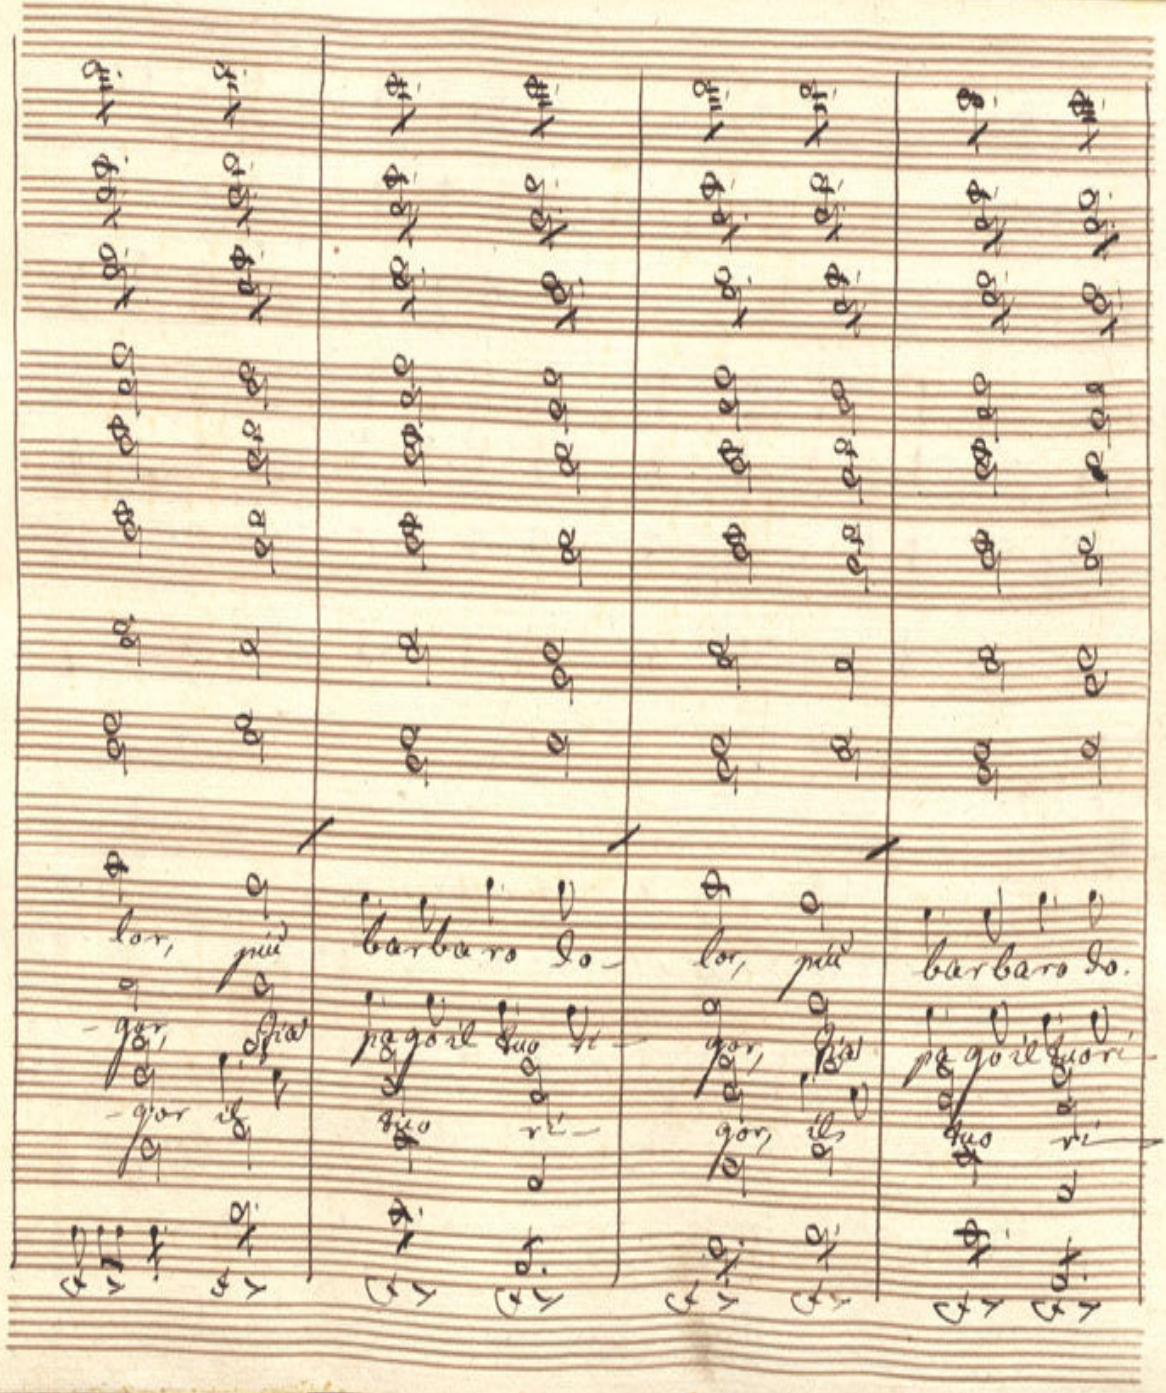 lor, più barbaro do- lor, più barbaro do.
-gor, Sia pago il tuo ri- gor, Sia pago il tuo ri-
-gor il tuo ri- gor, il tuo ri-